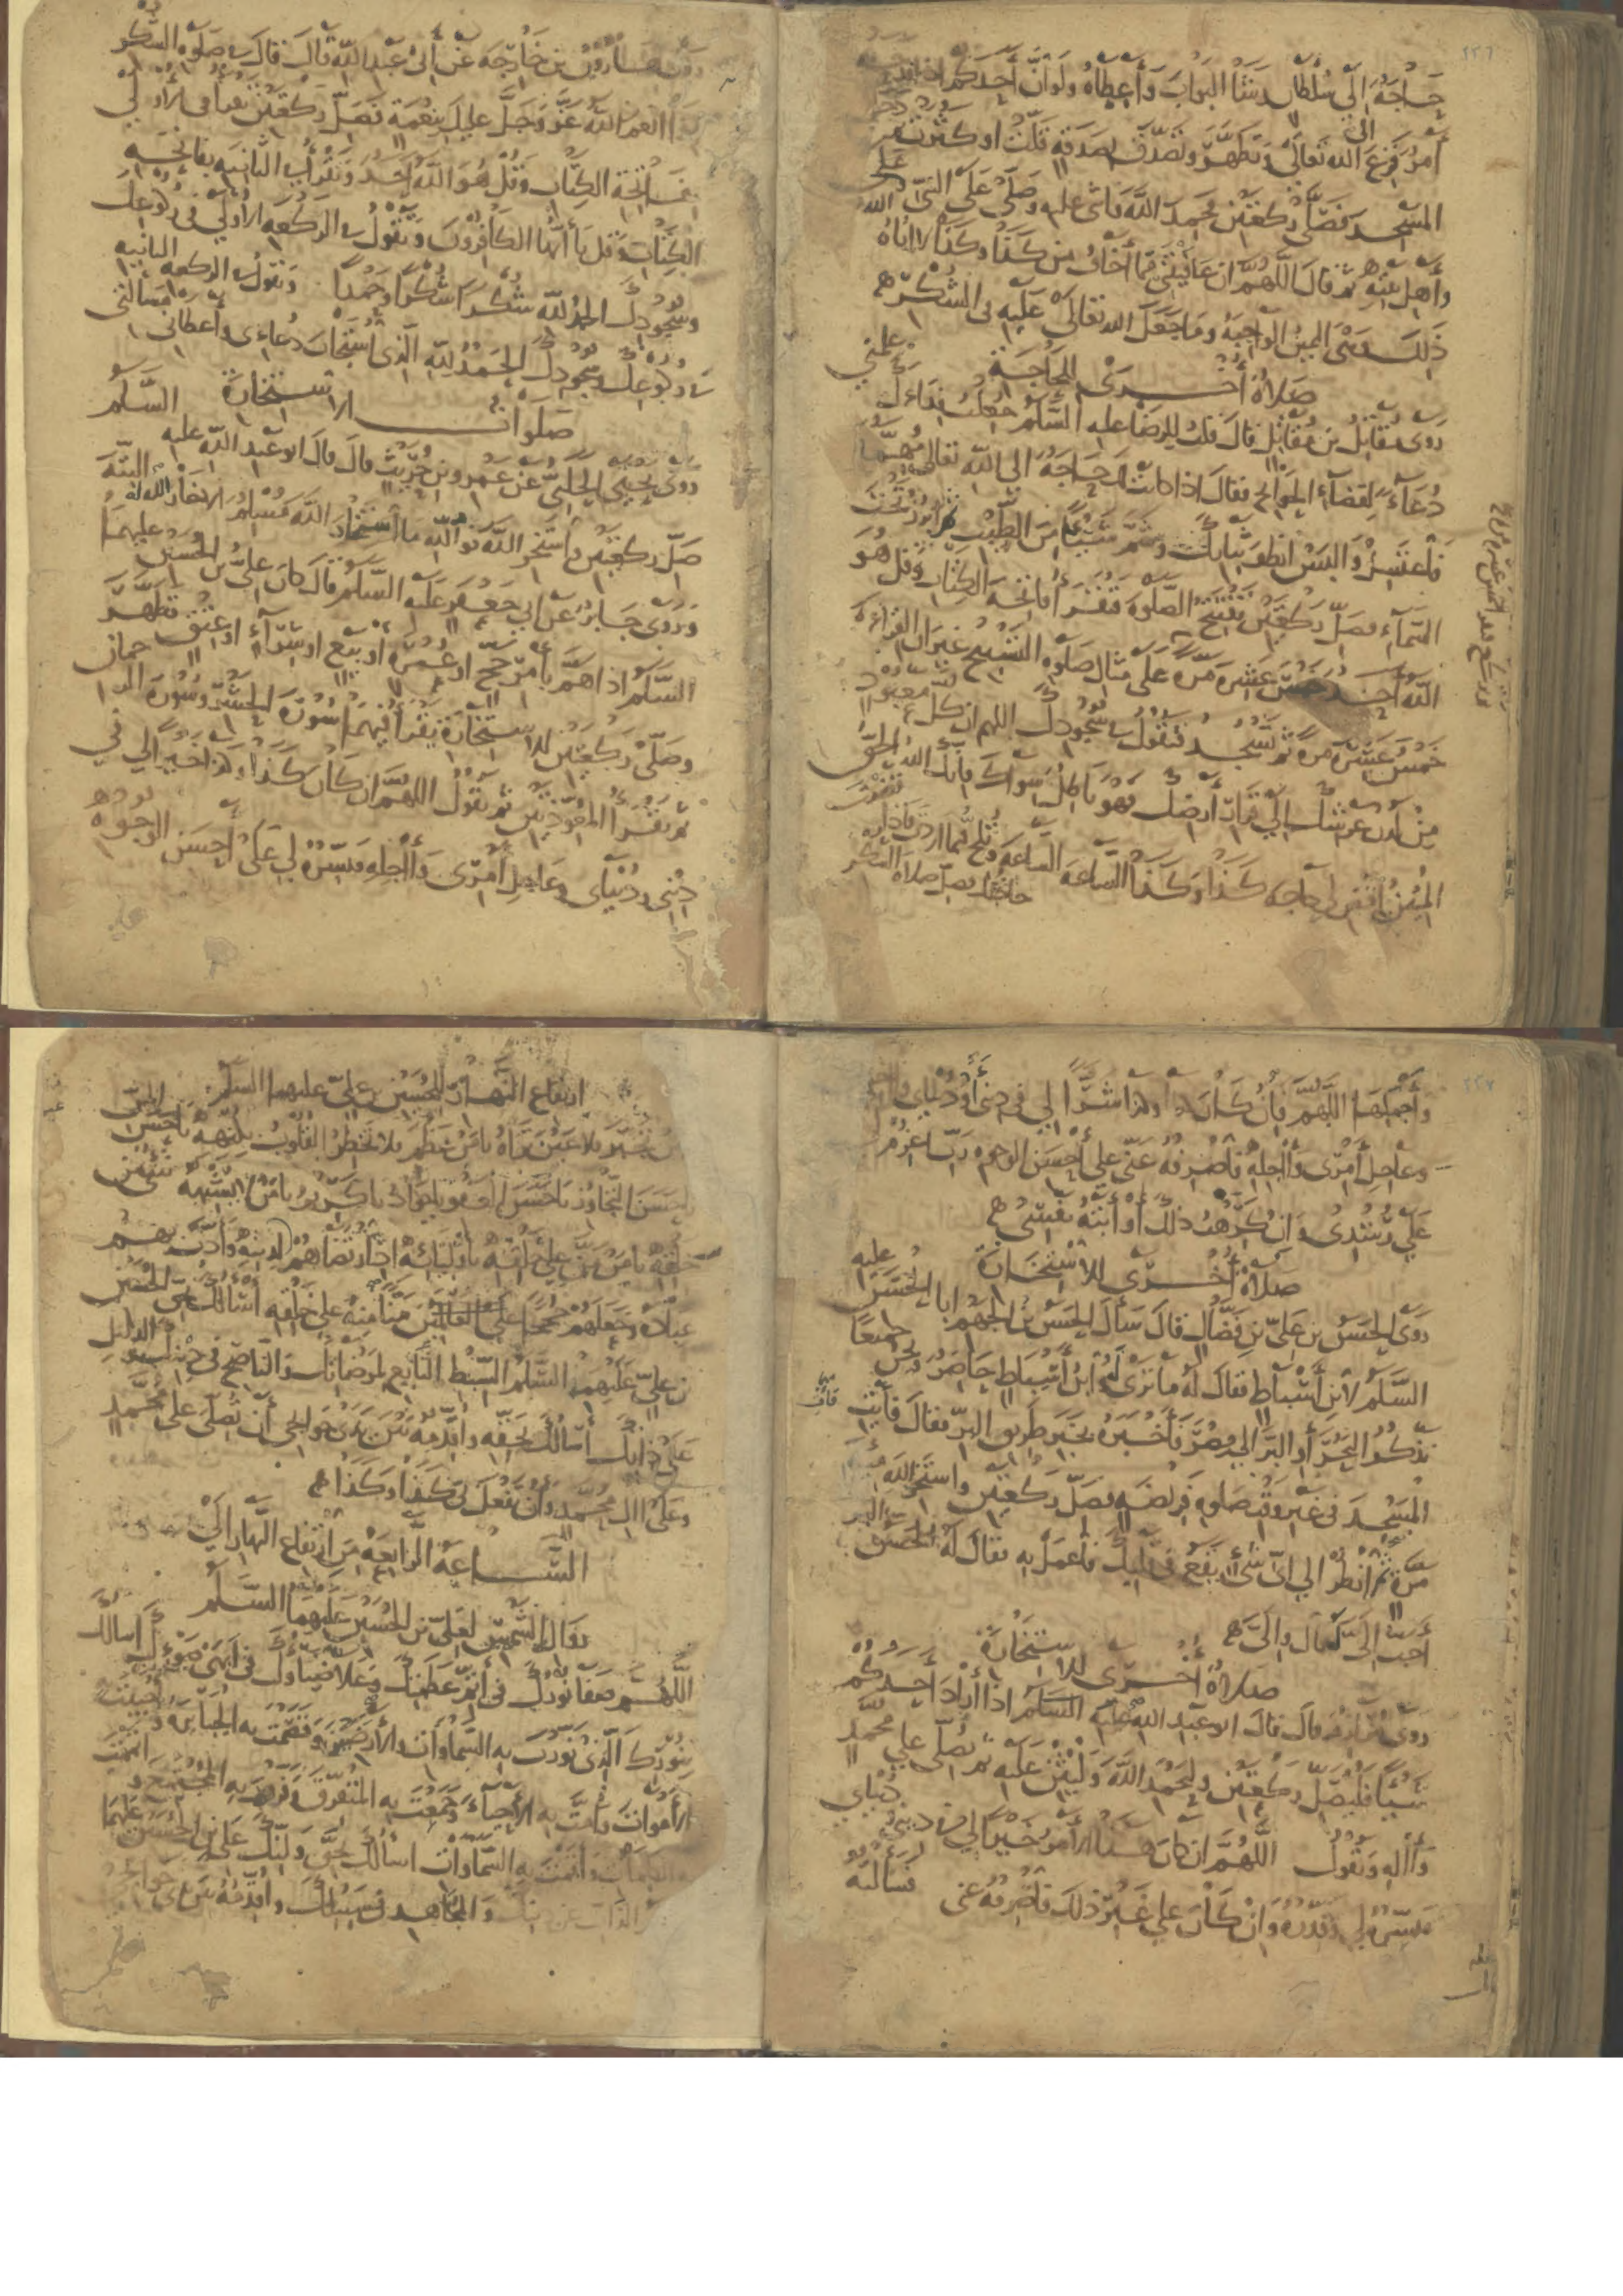 ٢٢٦
حاجة إلى سلطان رشا البواب وأعطاه ولو أن أحدكم إذا فدحه
أمر فزع إلى الله تعالى وتطهر وتصدق بصدقة قلت أو كثرت ثم دخل
المسجد فصلى ركعتين فحمد الله وأثنى عليه وصلى على النبي صلى الله عليه
وأهل بيته ثم قال اللهم ان عافيتني مما أخاف من كذا وكذا لآتاه
ذلك وهي اليمين الواجبة وما جعل الله تعالى عليه في الشكر
صلاة أخرى للحاجة
روى مقاتل بن مقاتل قال قلت للرضا عليه السلم جعلت فداءك علمني
دعاء لقضاء الحوائج فقال اذا كانت لك حاجة الى الله تعالى مهمة
فاغتسل والبس انظف ثيابك وشم شيئا من الطيب ثم ابرز تحت
السماء فصل ركعتين تفتتح الصلوة فتقرأ فاتحة الكتاب وقل هو
الله أحد خمس عشرة مرة على مثال صلوة التسبيح غير ان القراءة
خمس عشرة مرة ثم تسجد فتقول في سجودك اللهم ان كل معبود
من لدن عرشك إلى قرار أرضك فهو باطل سواك فإنك الله الحق
المبين اقض لي حاجة كذا وكذا الساعة الساعة وتلح فيما اردت فاذا
حاجتك فصل صلاة الشكر
روى هارون بن خارجة عن أبي عبد الله قال قال في صلوة الشكر
اذا انعم الله عز وجل عليك بنعمة فصل ركعتين تقرأ في الأولى
بفاتحة الكتاب وقل هو الله أحد وتقرأ في الثانية بفاتحة
الكتاب وقل يا أيها الكافرون وتقول في الركعة الأولى في ركوعك
وسجودك الحمد لله شكرا شكرا وحمدا وتقول في الركعة الثانية
في ركوعك وسجودك الحمد لله الذي استجاب دعاءي وأعطاني مسألتي
صلوات الاستخارة
روى يحيى الحلبي عن عمرو بن حريث قال قال ابو عبد الله عليه السلم
صل ركعتين واستخر الله فو الله ما استخار الله مسلم الا خار الله له البتة
وروى جابر عن ابي جعفر عليه السلم قال كان علي بن الحسين عليهما
السلم اذا هم بأمر حج او عمرة أو بيع او شراء او عتق تطهر
وصلى ركعتين للاستخارة يقرأ فيهما سورة الحشر وسورة الرحمان
ثم يقرأ المعوذتين ثم يقول اللهم ان كان كذا وكذا خيرا لي في
ديني ودنياي وعاجل أمري وآجله فيسره لي على أحسن الوجوه
٢٢٧
وأجملها اللهم فإن كان كذا وكذا شرا لي في ديني أو دنياي وآخرتي
وعاجل أمري وآجله فاصرفه عني على أحسن الوجوه رب اعزم
علي رشدي وان كرهت ذلك أو أبته نفسي
صلاة أخرى للاستخارة
روى الحسن بن علي بن فضال قال سأل الحسن بن الجهم ابا الحسن عليه
السلم لابن أسباط فقال له ما ترى له وابن أسباط حاضر ونحن جميعا
نذكر البحر أو البر إلى مصر فأخبره بخير طريق البر فقال فأتيت
المسجد في غير وقت صلوة فريضة فصل ركعتين واستخر الله مئة
مرة ثم انظر الى أي شيء يقع في قلبك فاعمل به فقال له الحسن البر
أحب إلي له قال وإلي
صلاة أخرى للاستخارة
روى مرازم قال قال ابو عبد الله عليه السلم اذا أراد أحدكم
شيئا فليصل ركعتين وليحمد الله وليثن عليه ثم يصلي على محمد
وآله ويقول اللهم ان كان هذا الأمر خيرا لي في ديني ودنياي
فيسره لي وقدره وان كان على غير ذلك فاصرفه عني فسألته
ارتفاع النهار للحسين بن علي عليهما السلم
يا من تجبر فلا عين تراه يا من عظم فلا تخطر القلوب بكنهه يا حسن المن
يا حسن التجاوز يا حسن العفو يا جواد يا كريم يا من لا يشبهه شيء من
خلقه يا من من على خلقه بأوليائه اذ ارتضاهم لدينه وأدب بهم
عباده وجعلهم حججا على العالمين منا منه على خلقه أسألك بحق الحسين
بن علي عليهما السلم السبط التابع لمرضاتك والناصح في دينك والدليل
على ذاتك أسألك بحقه وأقدمه بين يدي حوائجي أن تصلي على محمد
وعلى آل محمد وأن تفعل بي كذا وكذا
الساعة الرابعة من ارتفاع النهار إلى
زوال الشمس لعلي بن الحسين عليهما السلم
اللهم صفا نورك في أتم عظمتك وعلا ضياؤك في أبهى ضوئك أسألك
بنورك الذي نورت به السماوات والأرضين وقصمت به الجبابرة وأحييت
به الأموات وأمت به الأحياء وجمعت به المتفرق وفرقت به المجتمع وأتممت
به الكلمات وأقمت به السماوات أسألك بحق وليك علي بن الحسين عليهما
الذاب عن دينك والمجاهد في سبيلك وأقدمه بين يدي حوائجي